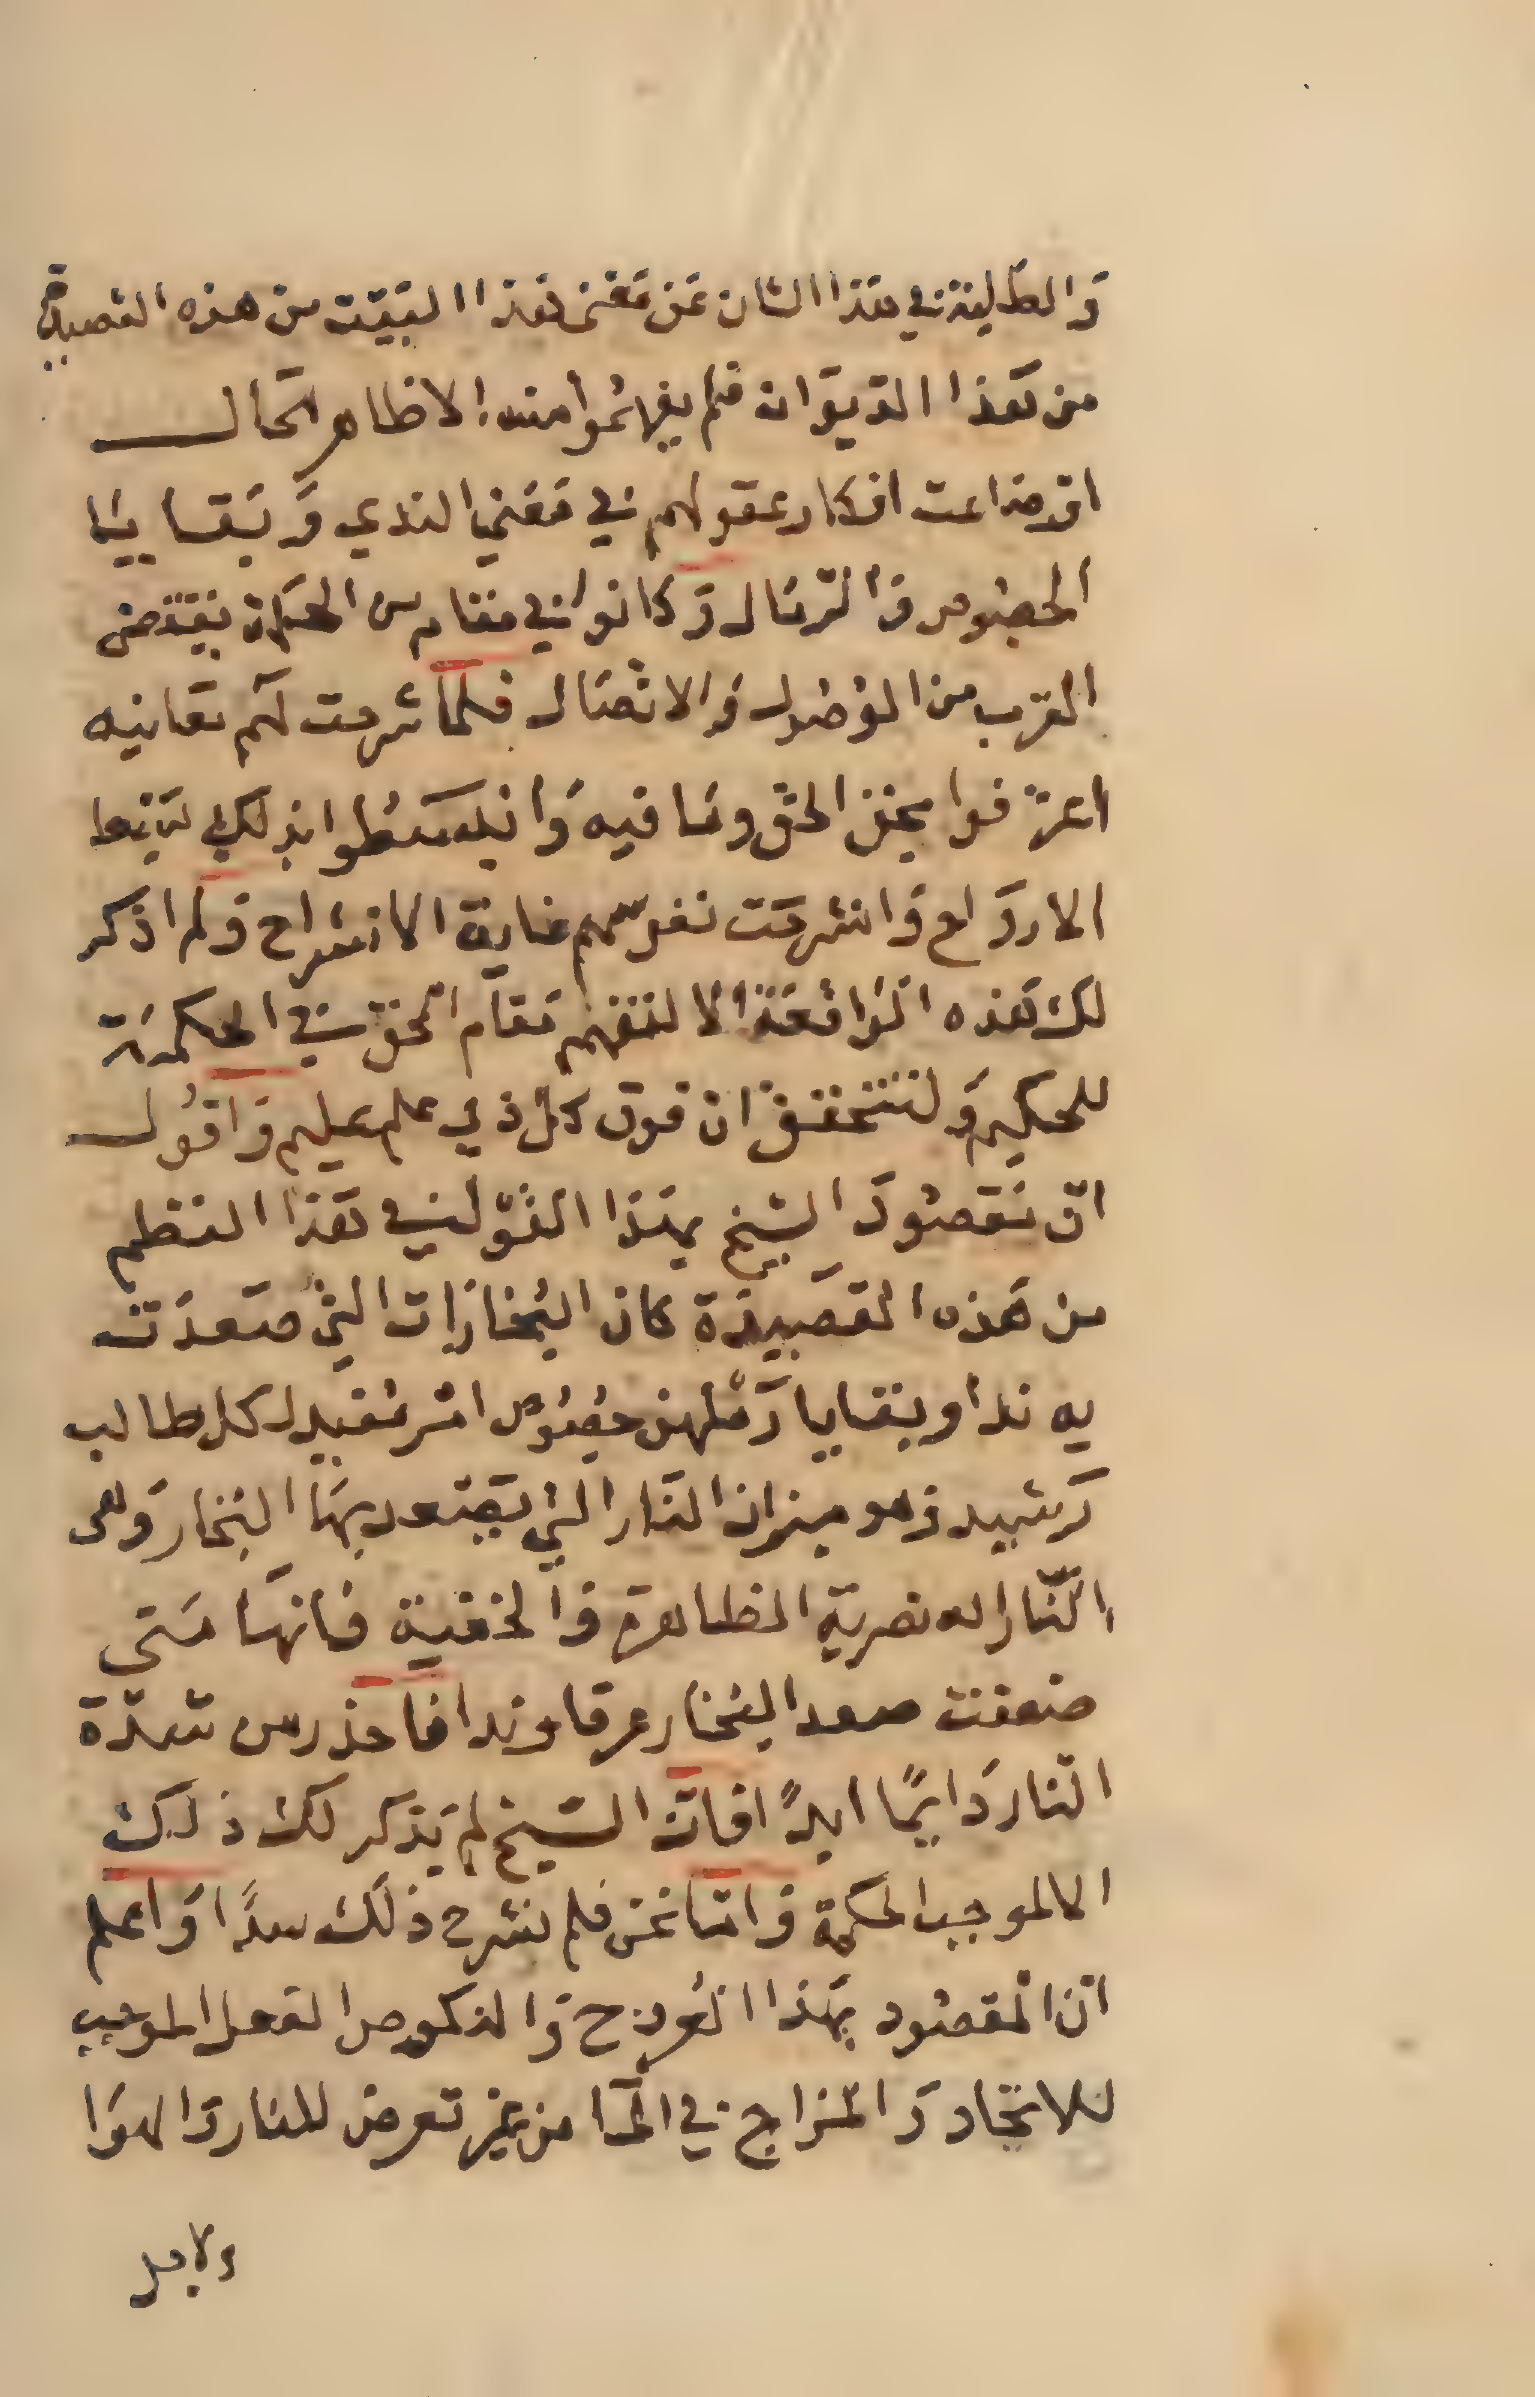 والطلبة في هذا الشان عن معنى هذا البيت من هذه القصيدة
من هذا الديوان فلم يفهموا منه الا ظاهر الحال
او ضاعت افكار عقولهم في معنى الندي وبقايا
الحضوض والرمال وكانوا في مقام من الحكمة يقتضى
القرب من الوصول والاتصال فلما شرحت لهم معانيه
اعترفوا بحق الحق وما فيه وانبسطوا بذلك
الارواح وانشرحت نفوسهم غاية الانشراح ولم اذكر
لك هذه الواقعة الا لتفهم مقام الحق في الحكمة
للحكيم ولتتحقق ان فوق كل ذي علم عليم واقول
ان مقصود الشيخ بهذا القول في هذا النظم
من هذه القصيدة كان البخارات التي صعدت
به ندا وبقايا رملهن حضوض امر مفيد لكل طالب
رشيد وهو ميزان النار التي يصعد بها البخار وهى
النار العنصرية الظاهرة والخفية فانها متى
ضعفت صعد البخار عرقا وندا فاحذر من شدة
النار دايمًا ابدًا فان الشيخ لم يذكر لك ذلك
الا لموجب الحكمة واما نحن فلم نشرح ذلك سدًا واعلم
ان المقصود بهذا العروج والنكوص الفعل الموجب
للاتحاد والمزاج في الما من غير تعرض للنار والهوا
ولاجل